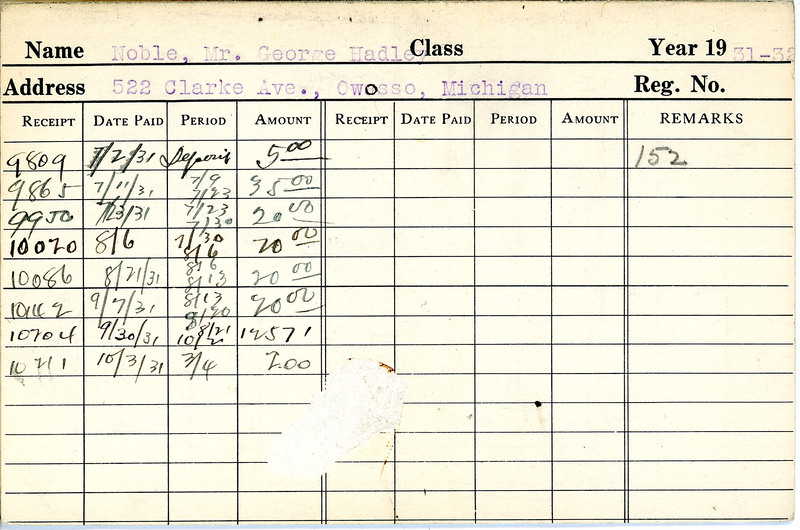 Name Noble, Mr. George Hadley Class Year 19 31-32
Address 522 Clarke Ave., Owosso, Michigan Reg. No.
RECEIPT DATE PAID PERIOD AMOUNT RECEIPT DATE PAID PERIOD AMOUNT REMARKS
9809 7/2/31 Deposit 5 00 152
9865 7/11/31 7/9 7/23 35 00
9950 7/23/31 7/23 7/30 20 00
10020 8/6 7/30 8/6 20 00
10086 8/21/31 8/6 8/13 20 00
10142 9/7/31 8/13 8/20 20 00
10204 9/30/31 8/21 10/2 125 71
10211 10/3/31 3/4 2.00